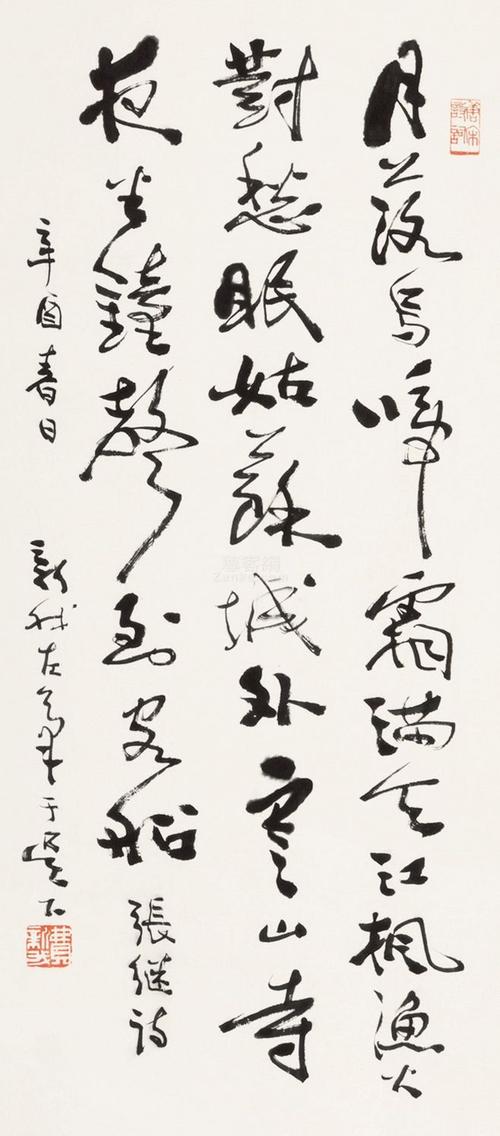 月落烏啼霜滿天江楓漁火
對愁眠姑蘇城外寒山寺
夜半鐘聲到客船 張継詩
辛酉春日 新我左
費新我